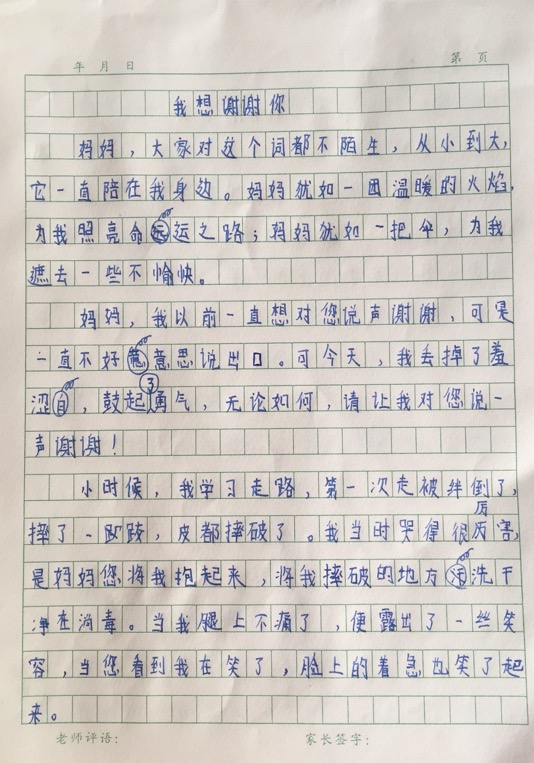 年 月 日 第 页
我想谢谢你
妈妈，大家对这个词都不陌生，从小到大，
它一直陪在我身边。妈妈犹如一团温暖的火焰，
为我照亮命运之路；妈妈犹如一把伞，为我
遮去一些不愉快。
妈妈，我以前一直想对您说声谢谢，可是
一直不好意思说出口。可今天，我丢掉了羞
涩，鼓起了勇气，无论如何，请让我对您说一
声谢谢！
小时候，我学习走路，第一次走被绊倒了，
摔了一跤，皮都摔破了。我当时哭得很厉害，
是妈妈您将我抱起来，将我摔破的地方洗干
净在消毒。当我腿上不痛了，便露出了一丝笑
容，当您看到我在笑了，脸上的着急也笑了起
来。
老师评语： 家长签字：